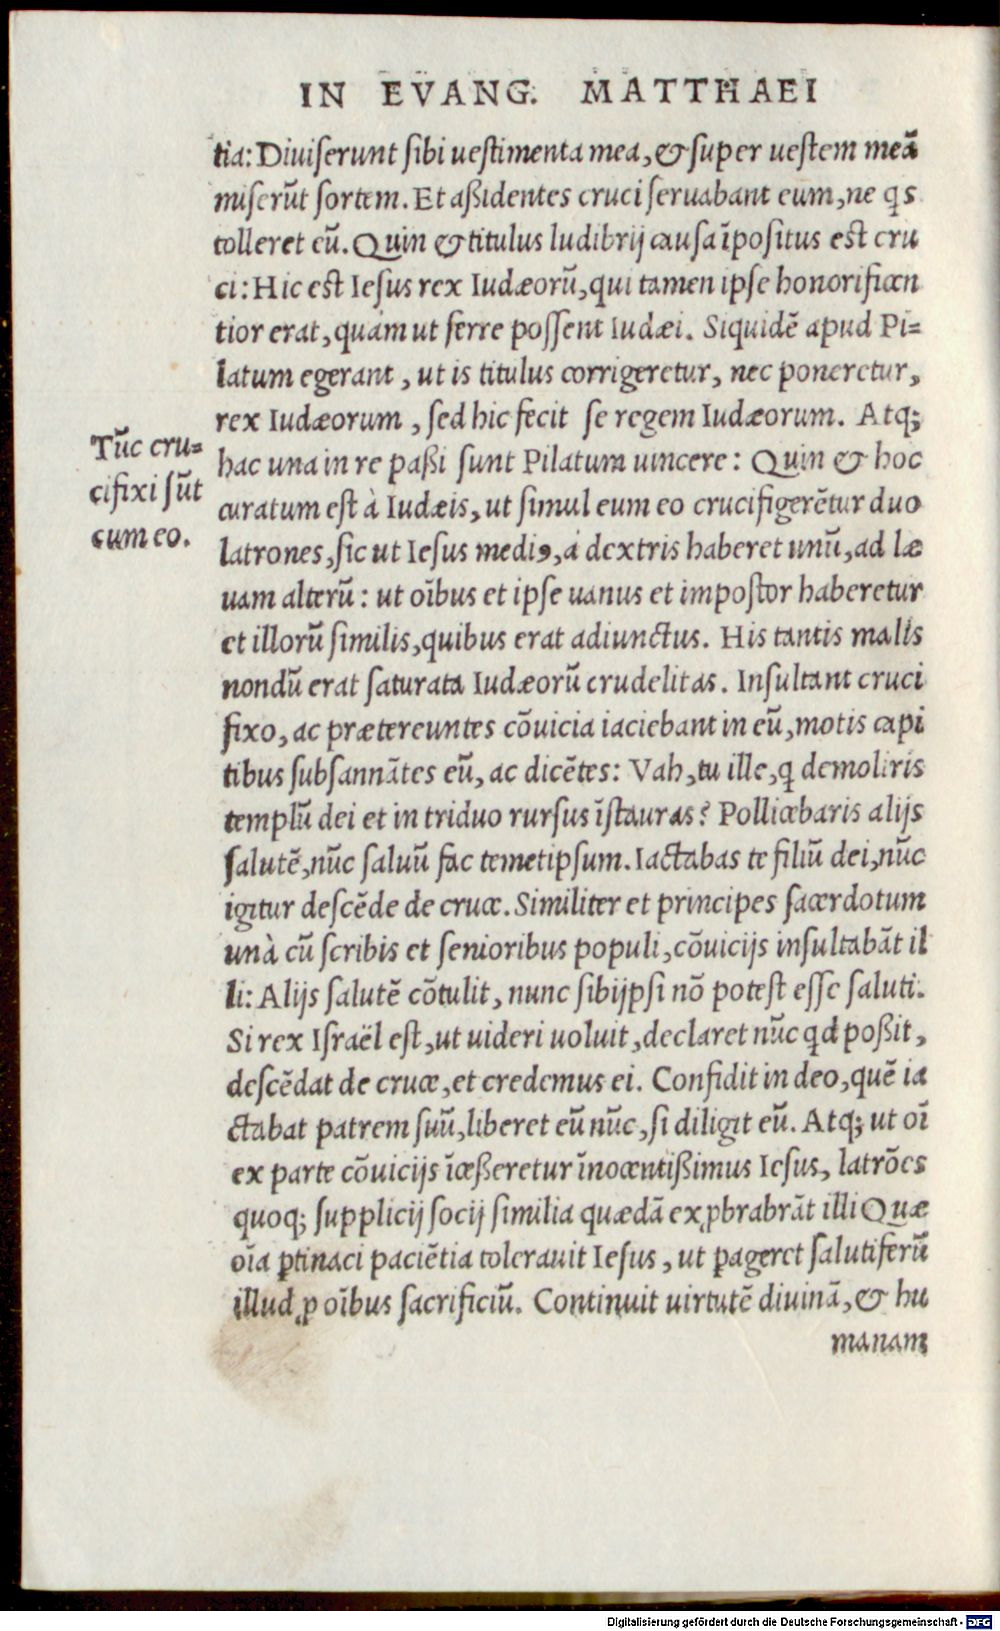 IN EVANG. MATTHAEI
tia: Diuiserunt sibi uestimenta mea, & super uestem meā
miserūt sortem. Et aßidentes cruci seruabant eum, ne qs
tolleret eū. Quin & titulus ludibrij causa īpositus est cru
ci: Hic est Iesus rex Iudæorū, qui tamen ipse honorificen
tior erat, quàm ut ferre possent Iudæi. Siquidē apud Pi=
latum egerant, ut is titulus corrigeretur, nec poneretur,
rex Iudæorum, sed hic fecit se regem Iudæorum. Atq;
Tūc cru=
cifixi sūt
cum eo.
hac una in re paßi sunt Pilatum uincere: Quin & hoc
curatum est à Iudæis, ut simul cum eo crucifigerētur duo
latrones, sic ut Iesus mediꝰ, à dextris haberet unū, ad læ
uam alterū: ut oībus et ipse uanus et impostor haberetur
et illorū similis, quibus erat adiunctus. His tantis malis
nondū erat saturata Iudæorū crudelitas. Insultant cruci
fixo, ac prætereuntes cōuicia iaciebant in eū, motis capi
tibus subsannātes eū, ac dicētes: Vah, tu ille, q demoliris
templū dei et in triduo rursus īstauras? Pollicebaris alijs
salutē, nūc saluū fac temetipsum. Iactabas te filiū dei, nūc
igitur descēde de cruce. Similiter et principes sacerdotum
unà cū scribis et senioribus populi, cōuicijs insultabāt il
li: Alijs salutē cōtulit, nunc sibijpsi nō potest esse saluti.
Si rex Israël est, ut uideri uoluit, declaret nūc qd poßit,
descēdat de cruce, et credemus ei. Confidit in deo, quē ia
ctabat patrem suū, liberet eū nūc, si diligit eū. Atq; ut oī
ex parte cōuicijs īceßeretur īnocentißimus Iesus, latrōes
quoq; supplicij socij similia quædā exꝓbrabrāt illi Quæ
oīa ꝑtinaci paciētia tolerauit Iesus, ut ꝑageret salutiferū
illud ꝓ oībus sacrificiū. Continuit uirtutē diuinā, & hu
manam
Digitalisierung gefördert durch die Deutsche Forschungsgemeinschaft - DFG